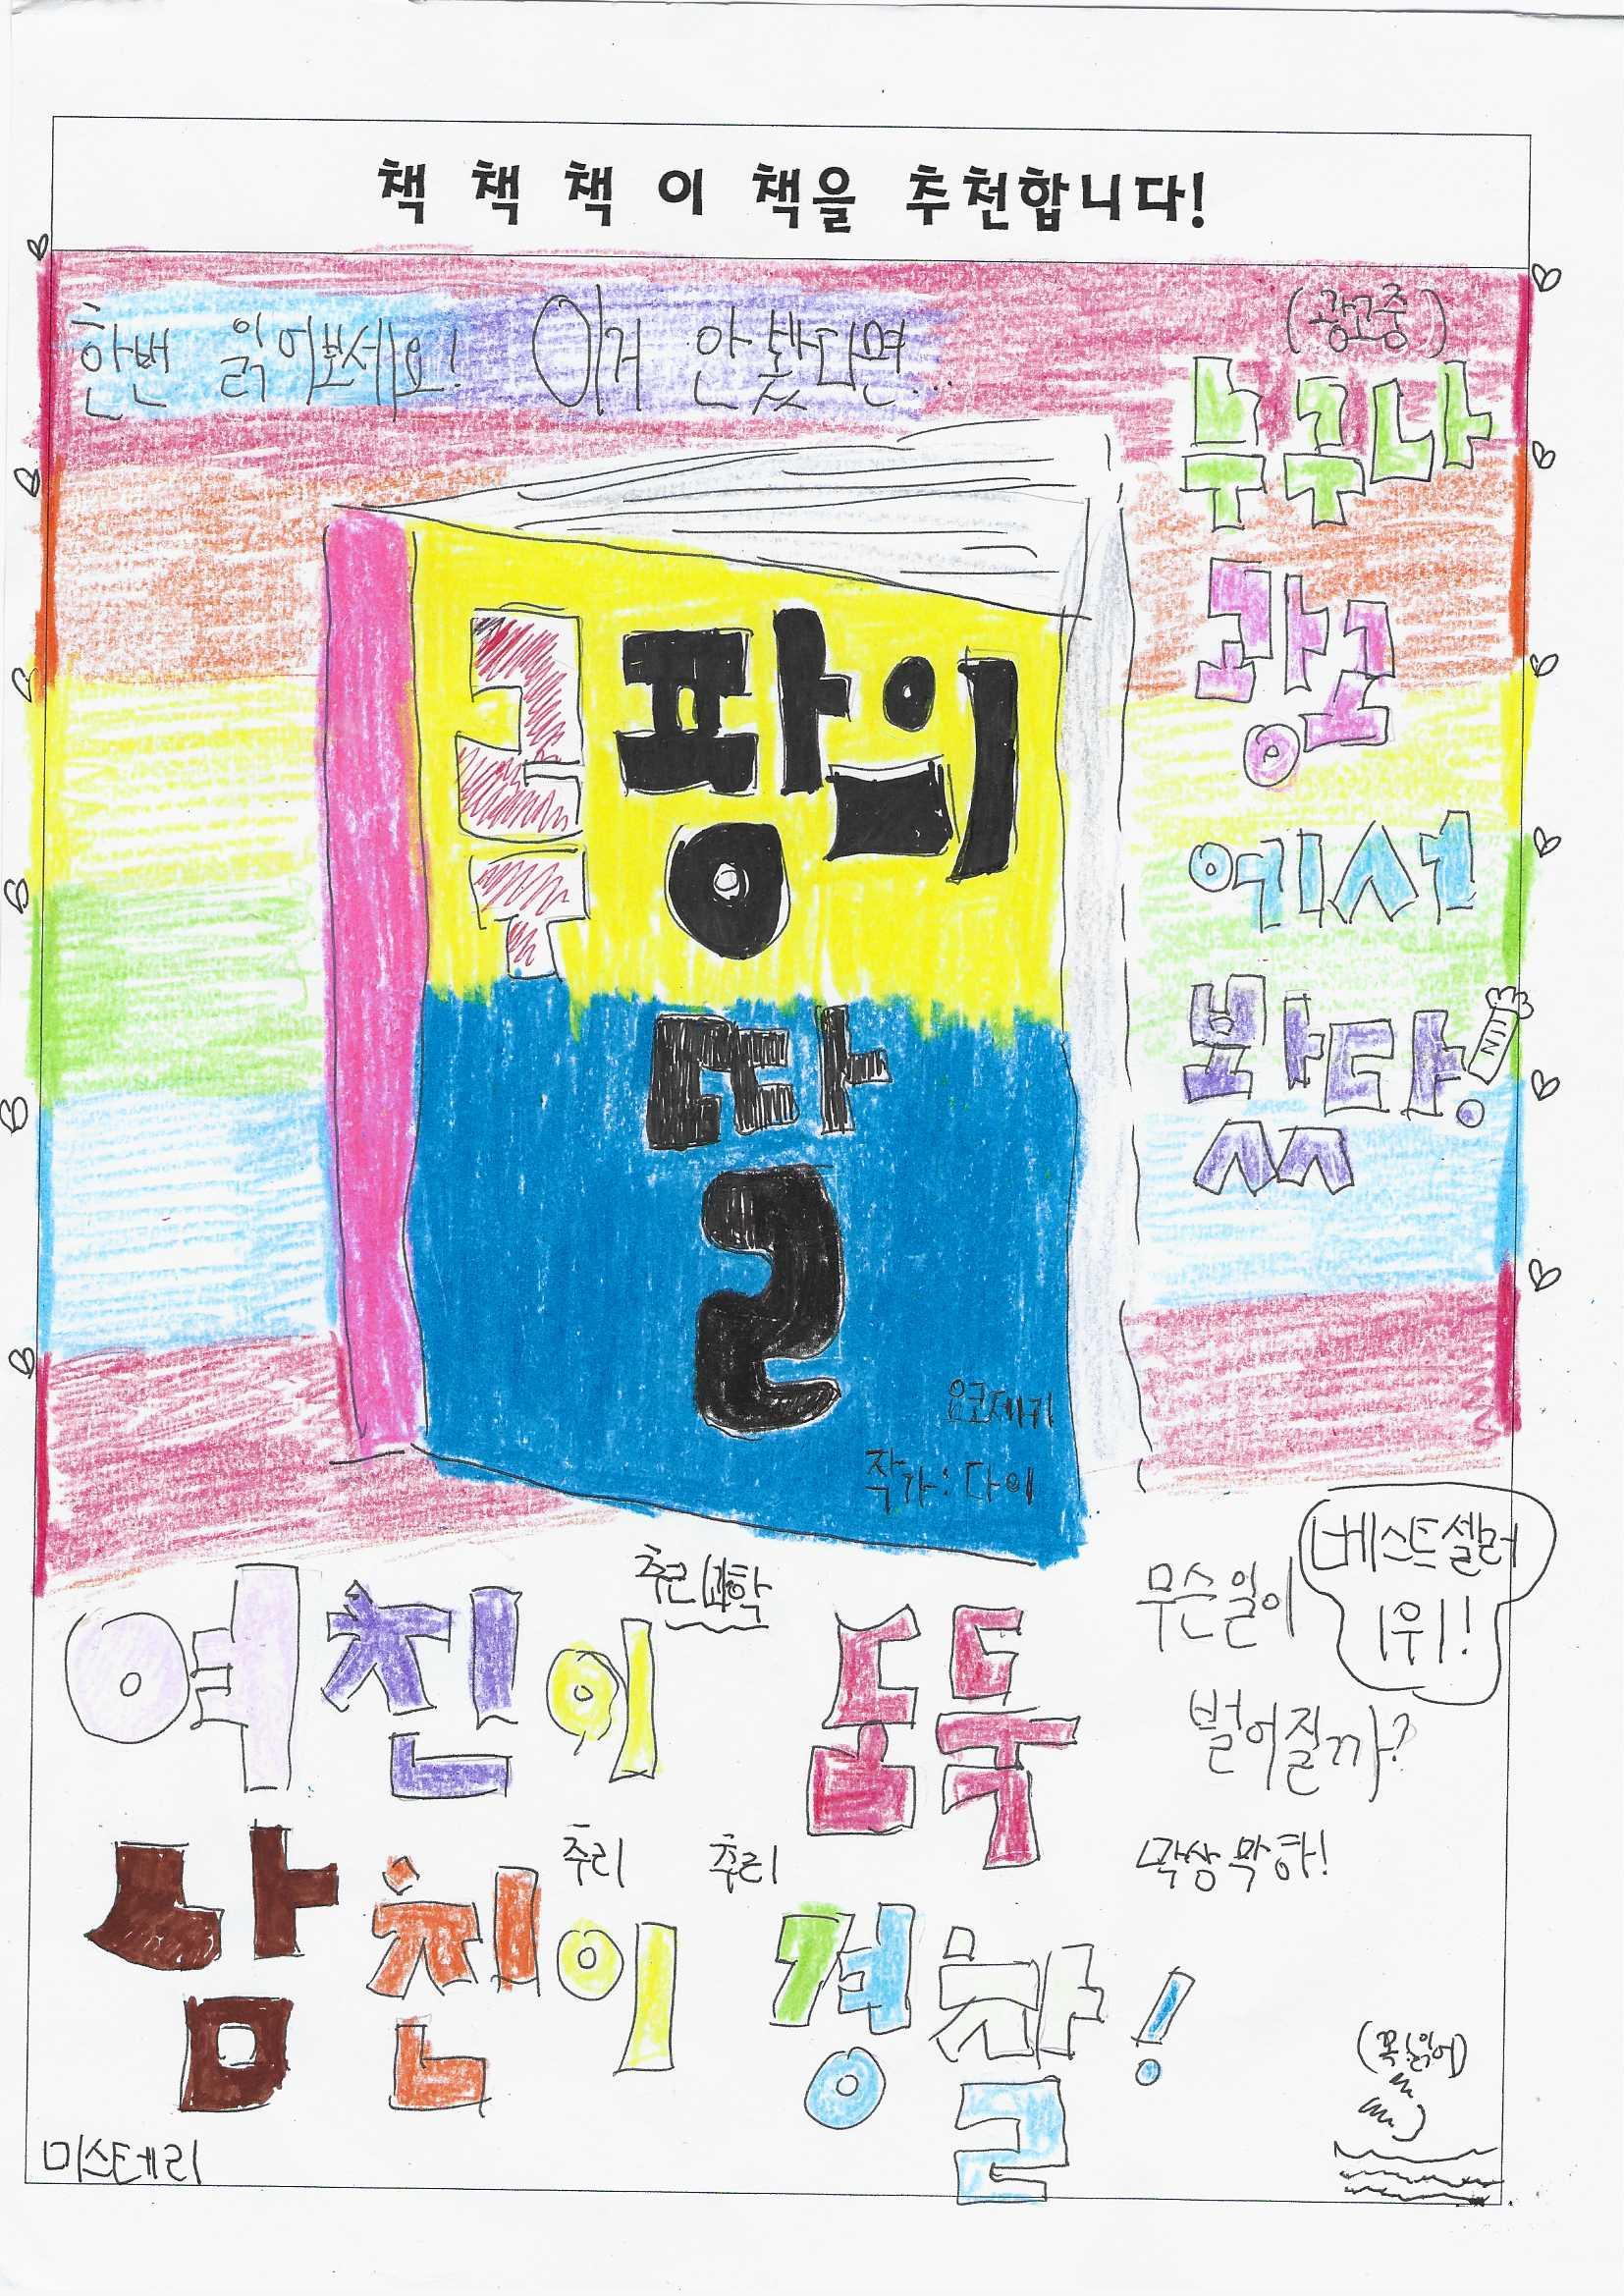 책 책 책 이 책을 추천합니다!
한번 읽어보세요! 이거 안봤다면..
(광고중)
누구나
광고
에선
봤다!
곰팡이
요코제키
작가: 다이
추리과학
여친이 도둑
무슨일이
벌어질까?
베스트셀러
1위!
추리 추리
막상막하!
남친이 경찰!
(꼭 읽어)
미스테리